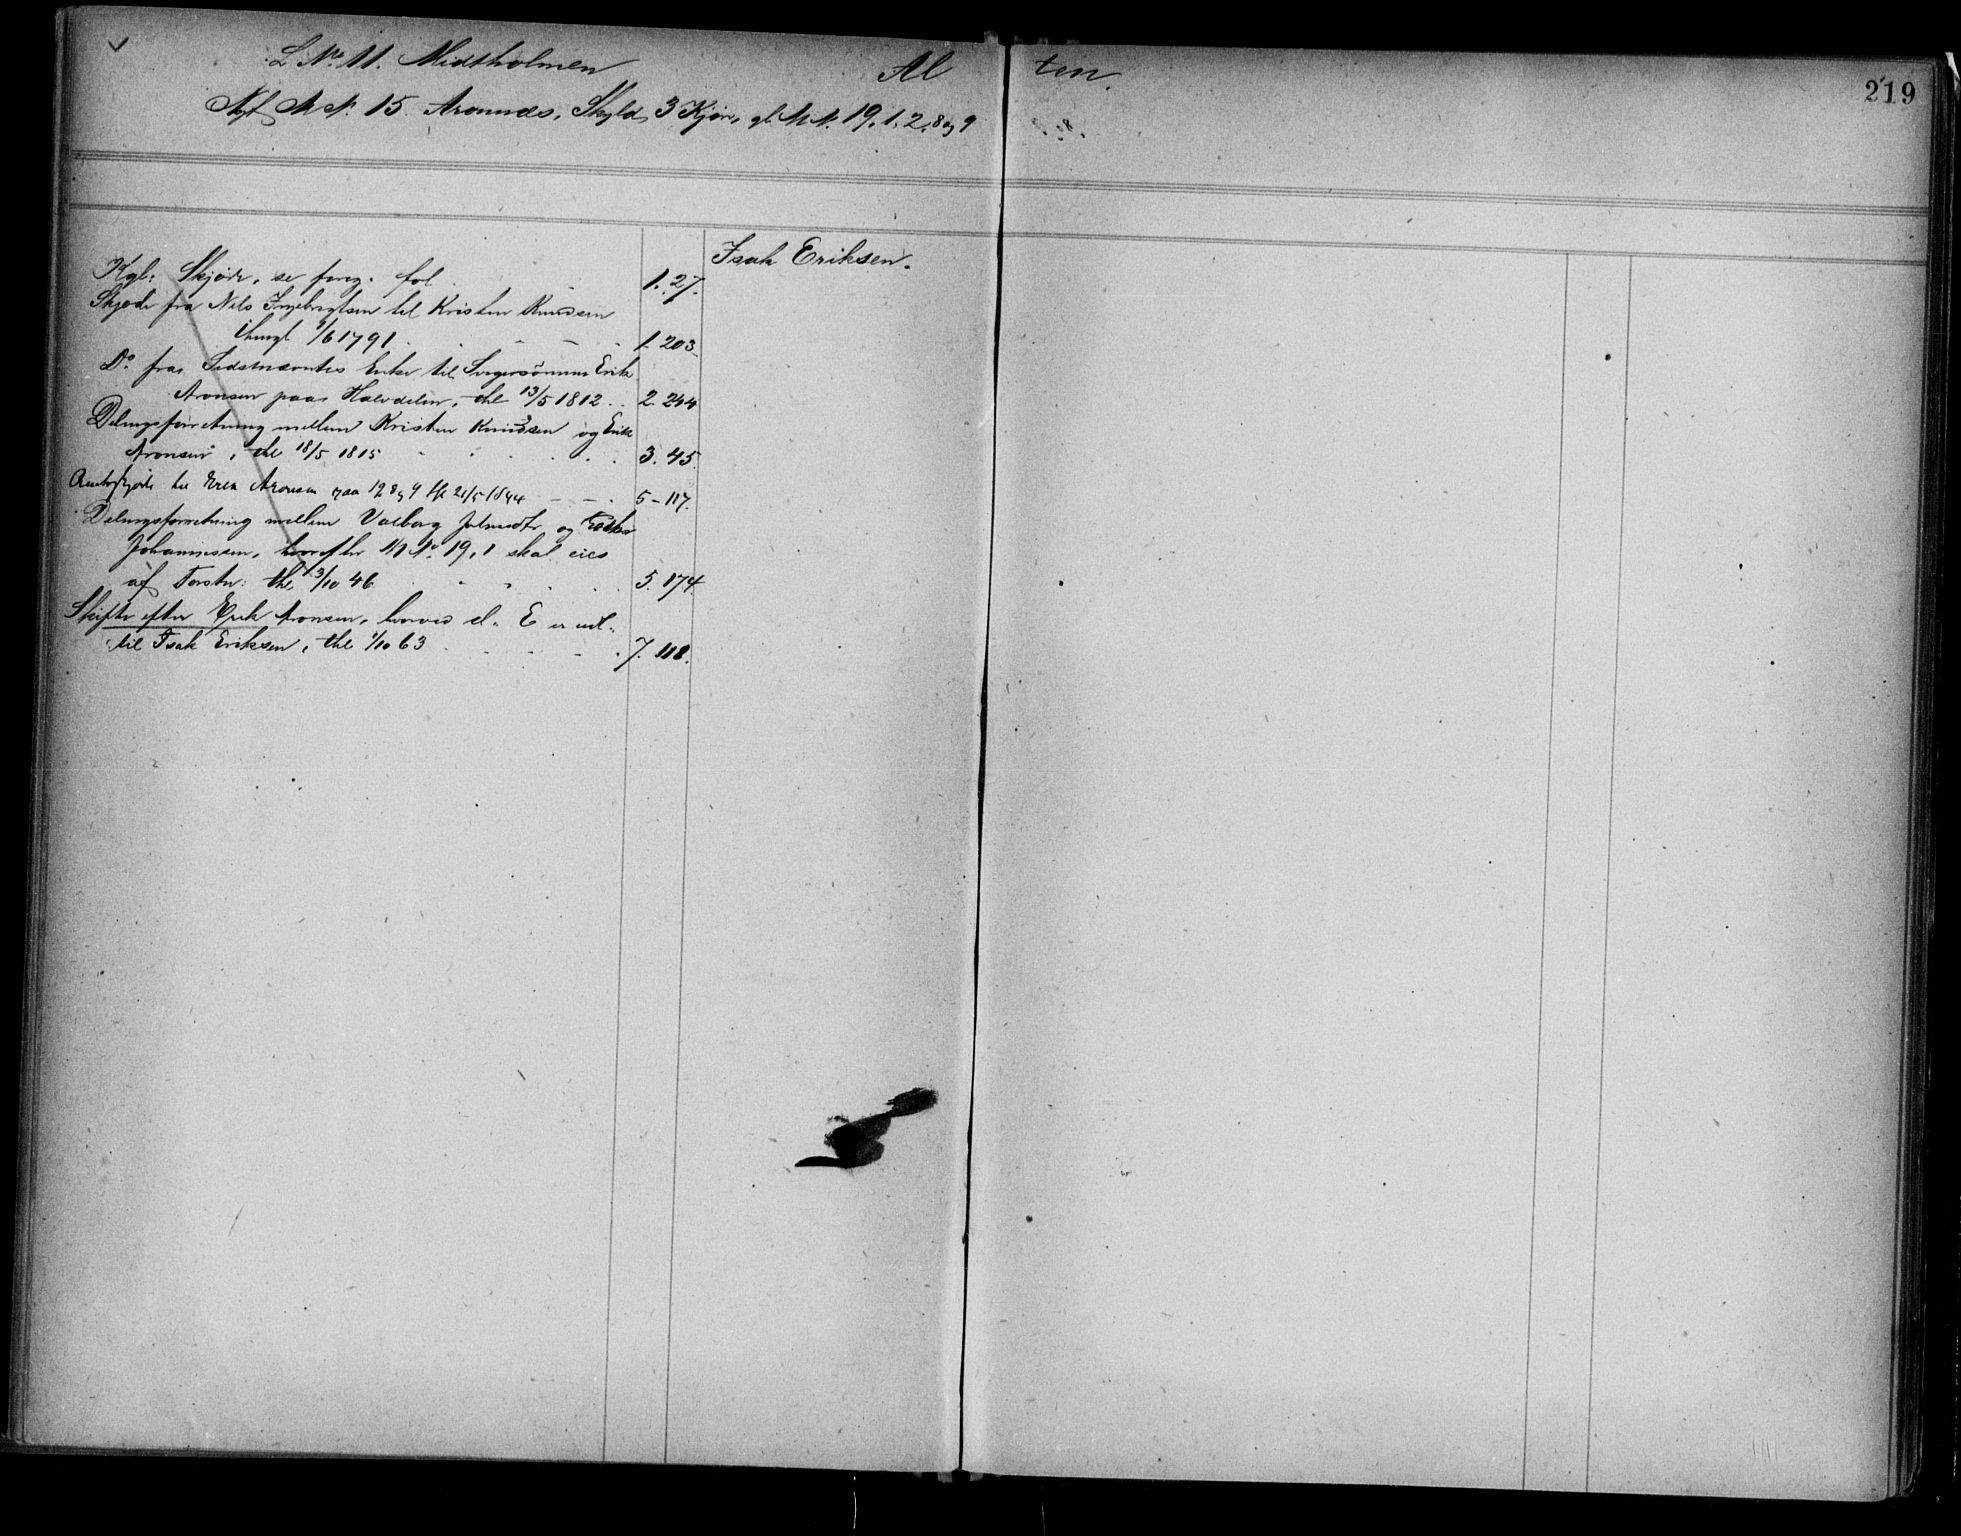 L No 11. Midtholmen Al ten.
219
Nyt M.N. 15. Aronnæs, Skyld, 3 Kjør, gl. M.N. 19,1.2,8 og 9
Isak Eriksen.
Kgl: Skjøde, se foreg. fol . . 1.27.
Skjøde fra Nils Ingebrigtsen til Kristen Knudsen
thingl. 9/6 1791 . - - . 1.203
Do fra Sidstnævntes Enke til Svigersønnen Erik
Aronsen paa Halvdelen, thl 13/5 1812 . . 2.244
Delingsforretning mellem Kristen Knudsen og Erik
Aronsen, thl 18/5 1815 . . . . . 3.45.
Amtsskjøde til Erik Aronsen paa 19 8 og 9 thl 21/5 1844 - - . 5-117.
Delingsforretning mellem Valborg Johnsdtr og
Johannessen, hvorefter M No 19,1 skal eies
af Torsten: thl, 3/10 46 . . . . 5.174
Skifte efter Erik Aronsen, hvorved d. E. er udl.
til Isak Eriksen, thl 1/10 63 . - . - - . 7.118.